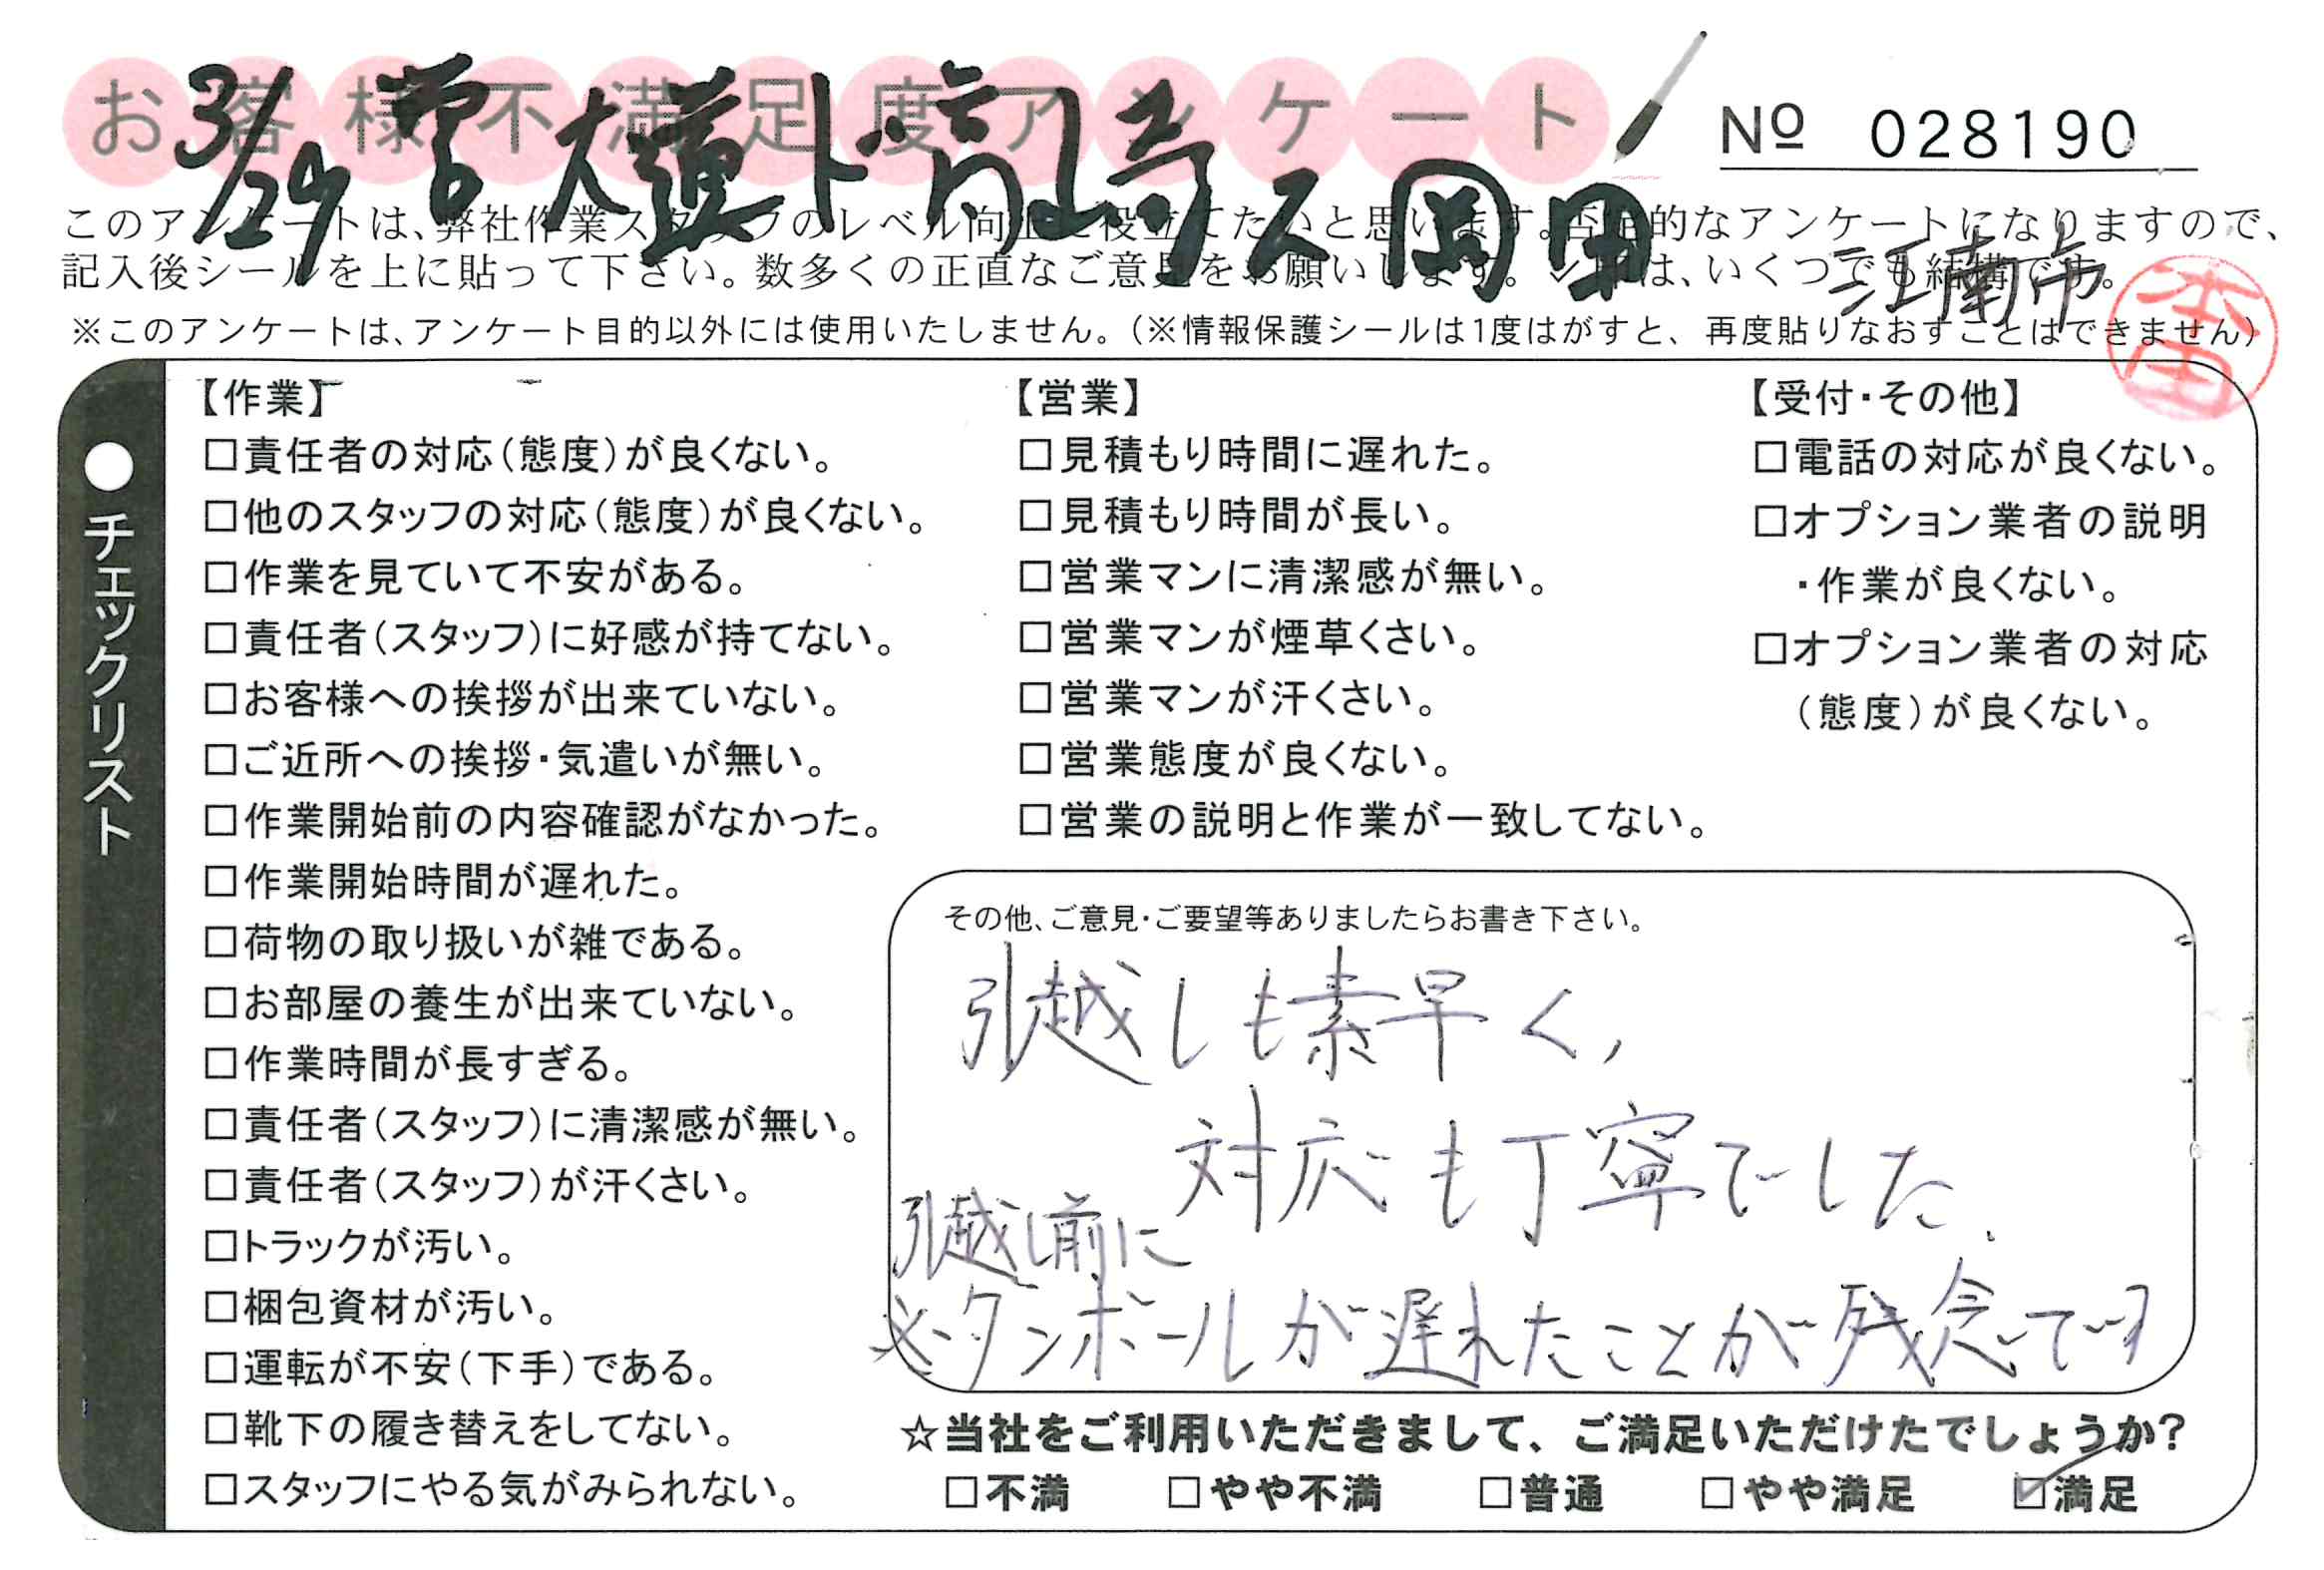 お客様不満足度アンケート
Nº 028190
3/29 営 大薗 ト高崎 ス岡田
江南市
本田
このアンケートは、弊社作業スタッフのレベル向上に役立てたいと思います。否定的なアンケートになりますので、
記入後シールを上に貼って下さい。数多くの正直なご意見をお願いします。シールは、いくつでも結構です。
※このアンケートは、アンケート目的以外には使用いたしません。（※情報保護シールは1度はがすと、再度貼りなおすことはできません）
●チェックリスト
【作業】
□責任者の対応（態度）が良くない。
□他のスタッフの対応（態度）が良くない。
□作業を見ていて不安がある。
□責任者（スタッフ）に好感が持てない。
□お客様への挨拶が出来ていない。
□ご近所への挨拶・気遣いが無い。
□作業開始前の内容確認がなかった。
□作業開始時間が遅れた。
□荷物の取り扱いが雑である。
□お部屋の養生が出来ていない。
□作業時間が長すぎる。
□責任者（スタッフ）に清潔感が無い。
□責任者（スタッフ）が汗くさい。
□トラックが汚い。
□梱包資材が汚い。
□運転が不安（下手）である。
□靴下の履き替えをしてない。
□スタッフにやる気がみられない。
【営業】
□見積もり時間に遅れた。
□見積もり時間が長い。
□営業マンに清潔感が無い。
□営業マンが煙草くさい。
□営業マンが汗くさい。
□営業態度が良くない。
□営業の説明と作業が一致してない。
【受付・その他】
□電話の対応が良くない。
□オプション業者の説明
・作業が良くない。
□オプション業者の対応
（態度）が良くない。
その他、ご意見・ご要望等ありましたらお書き下さい。
引越しも素早く,
対応も丁寧でした.
引越し前に
※ダンボールが遅れたことが残念です
☆当社をご利用いただきまして、ご満足いただけたでしょうか？
□不満 □やや不満 □普通 □やや満足 ☑満足